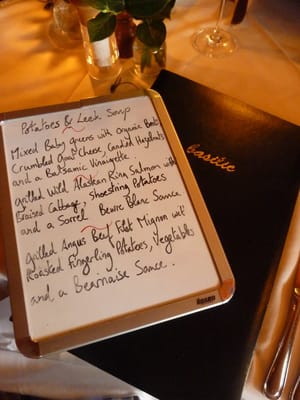 Potatoes & Leek Soup
Mixed Baby greens with Organic Beets
Crumbled Goat Cheese, Candied Hazelnuts
and a Balsamic Vinaigrette.
Grilled Wild Alaskan King Salmon with
Braised Cabbage, shoestring Potatoes
and a Sorrel Beurre Blanc Sauce
Grilled Angus Beef Filet Mignon with
Roasted Fingerling Potatoes, Vegetables
and a Bearnaise Sauce.
BOARD
Basilic